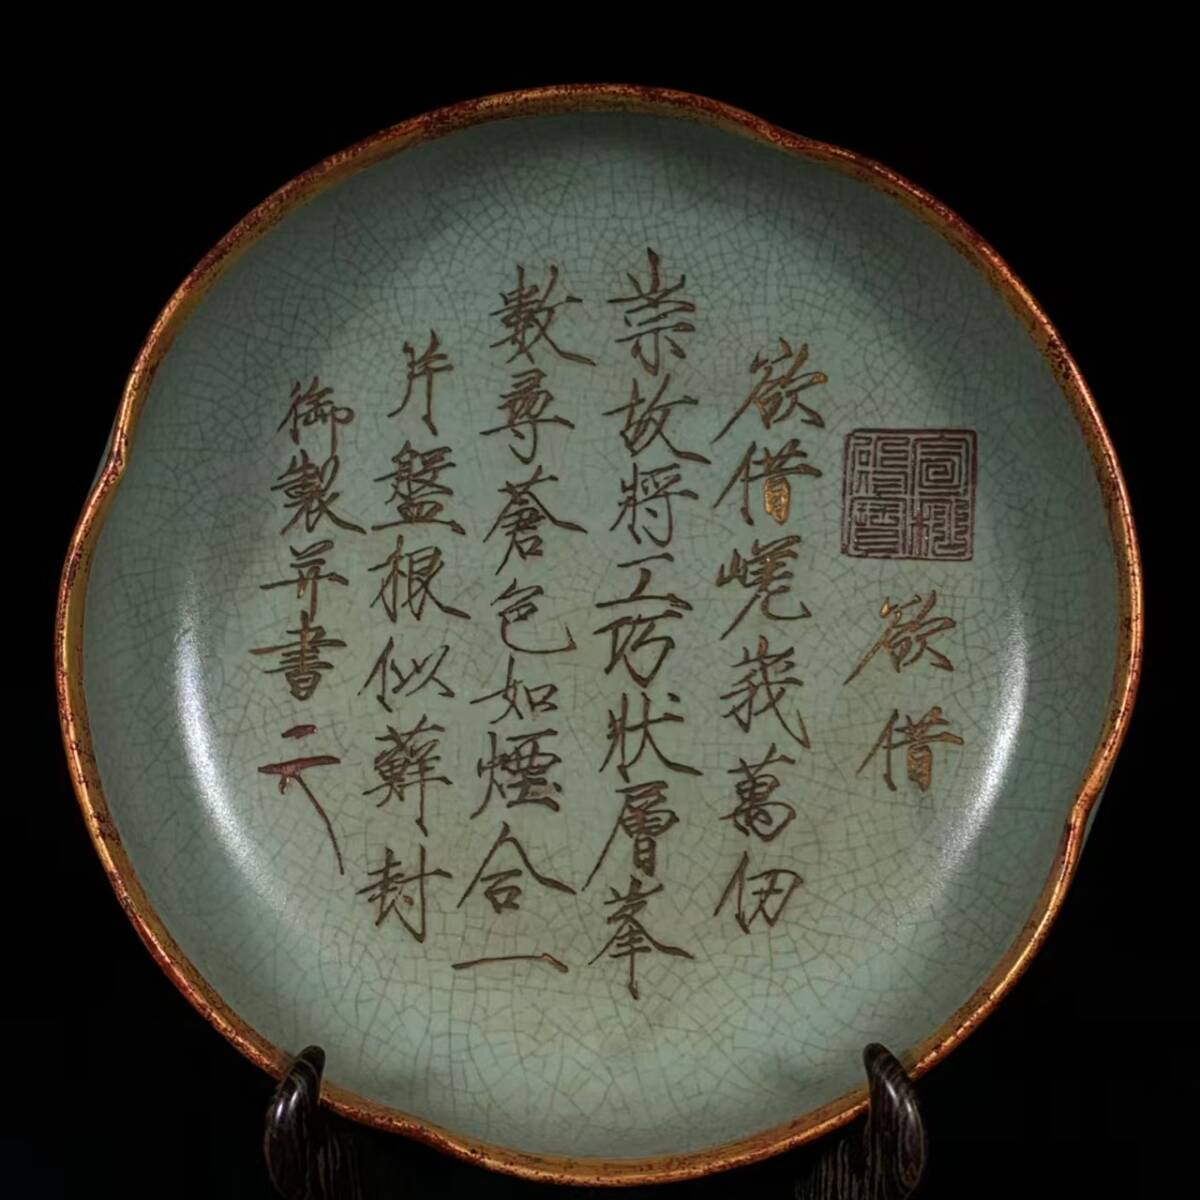 欲借
欲借嵯峩萬仞
崇故將工巧狀層峯
數尋蒼色如煙合一
片盤根似蘚封
御製并書